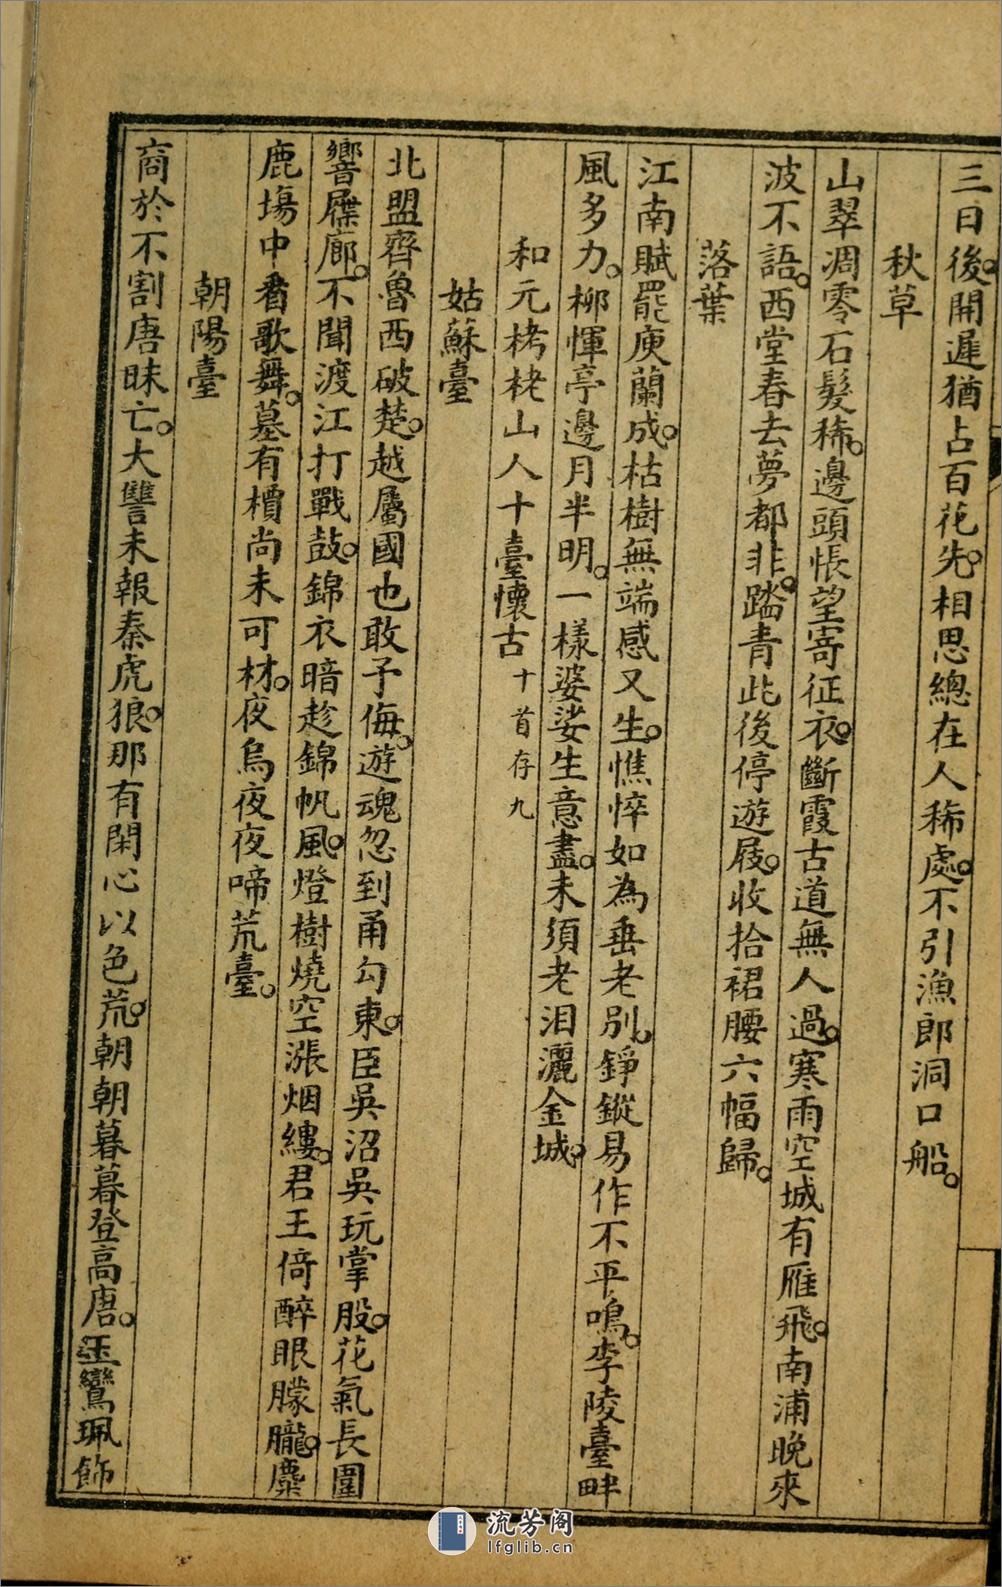 三日後。開遲猶占百花先。相思總在人稀處。不引漁郎洞口船。
秋草
山翠凋零石髮稀。邊頭悵望寄征衣。斷霞古道無人過。寒雨空城有雁飛。南浦晚來
波不語。西堂春去夢都非。踏青此後停遊屐。收拾裙腰六幅歸。
落葉
江南賦罷庾蘭成。枯樹無端感又生。憔悴如為垂老別。錚鏦易作不平鳴。李陵臺畔
風多力。柳惲亭邊月半明。一樣婆娑生意盡。未須老泪灑金城。
和元栲栳山人十臺懷古十首存九
姑蘇臺
北盟齊魯西破楚。越屬國也敢予侮。遊魂忽到甬勾東。臣吳沼吳玩掌股。花氣長圍
響屧廊。不聞渡江打戰鼓。錦衣暗趁錦帆風。燈樹燒空漲烟縷。君王倚醉眼朦朧。麋
鹿場中看歌舞。墓有檟尚未可材。夜烏夜夜啼荒臺。
朝陽臺
商於不割唐昧亡。大讐未報秦虎狼。那有閑心以色荒。朝朝暮暮登高唐。玉鸞珮飾
流芳阁
lfglib.cn